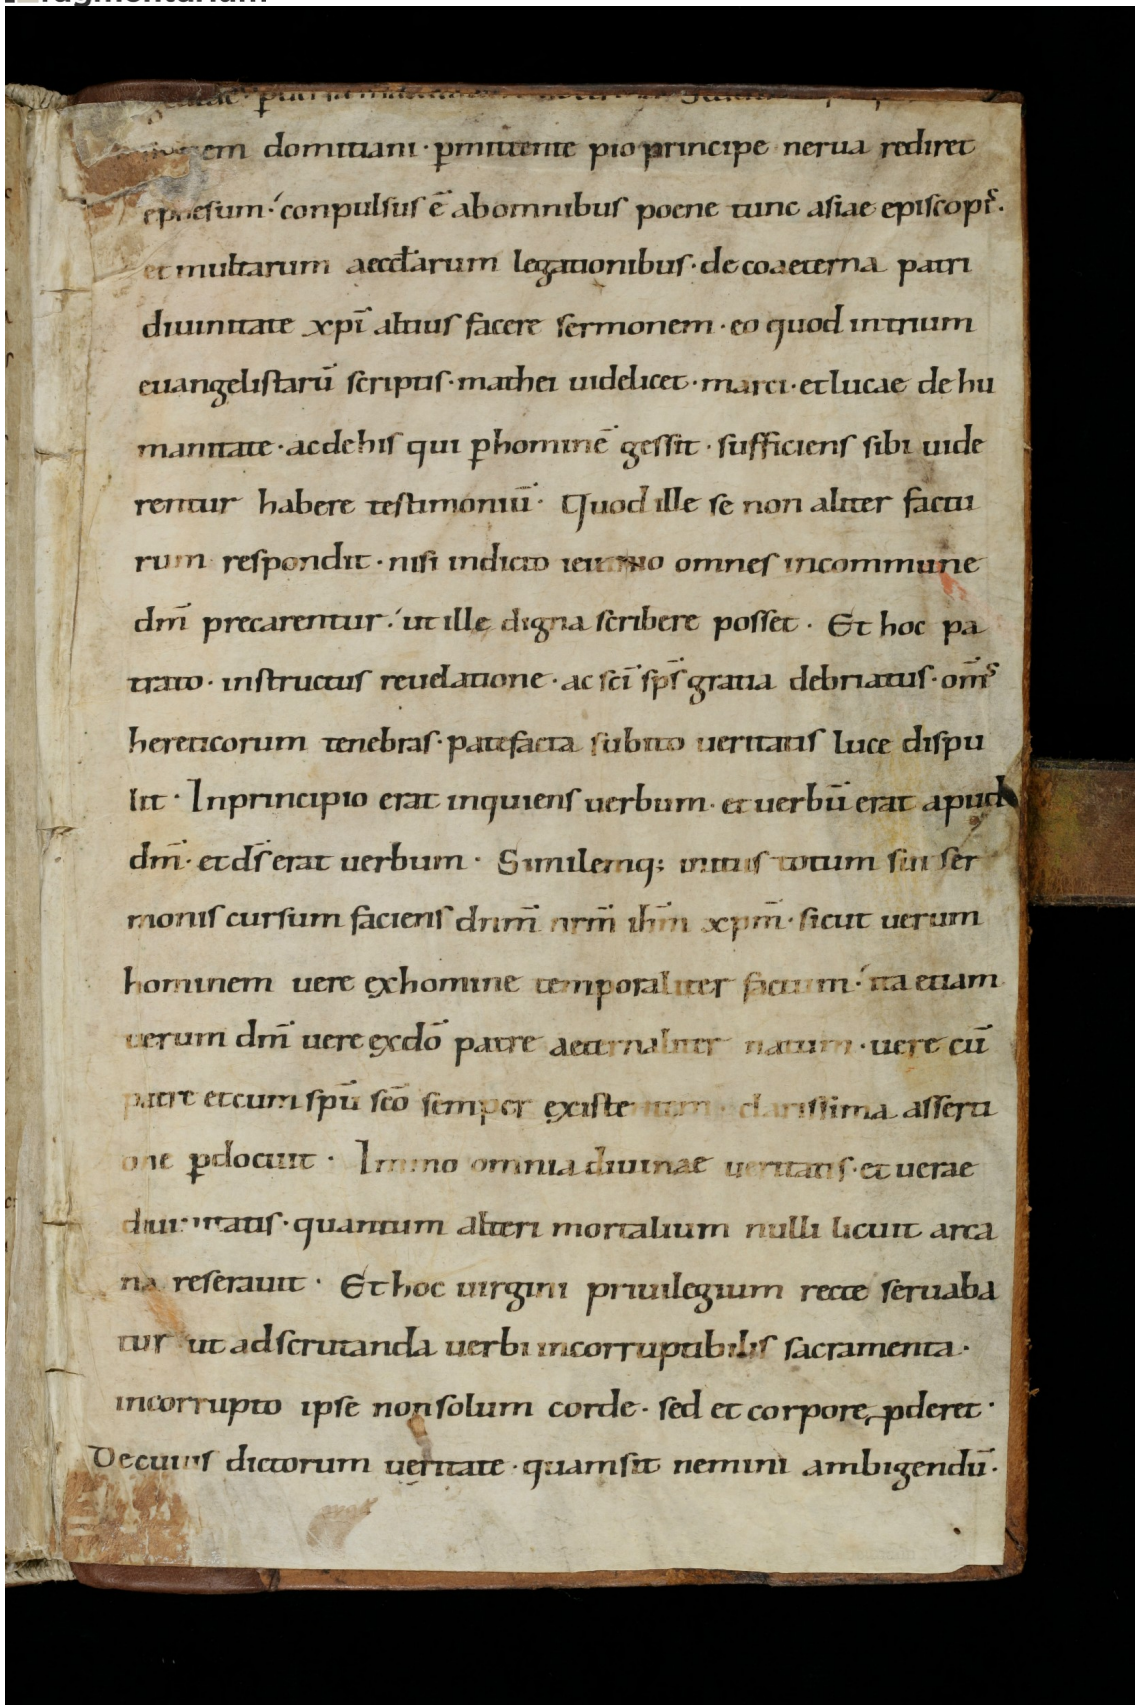 domitiani · p̄mittente pio principe nerua rediret
ephesum· conpulsus ē ab omnibus poene tunc asiae episcopis·
et multarum aeccłarum legationibus· de coaeterna patri
diuinitate xpī altius facere sermonem · eo quod in trium
euangelistarū scriptis· mathei uidelicet· marci· et lucae de hu
manitate · ac de his qui p̄ hominē gessit · sufficiens sibi uide
rentur habere testimoniū· Quod ille se non aliter factu
rum respondit · nisi indicto ieiunio omnes in commune
dm̄ precarentur · ut ille digna scribere posset · Et hoc pa
trato · instructus reuelatione · ac sci̅ sps̅ gratia debriatus · om̅s
hereticorum tenebras· patefacta subito ueritatis luce dispu
lit · In principio erat inquiens uerbum· et uerbū erat apud
dm̄· et ds̄ erat uerbum · Similemq; totum sui ser
monis cursum faciens dnm̄ nrm̄ ihm̄ xpm̄ · sicut uerum
hominem uere ex homine temporaliter factum · ita etiam
uerum dm̄ uere ex dō patre aeternaliter natum · uere cū
patre et cum spū scō semper existentem · clarissima asserti
one p̄docuit · Immo omnia diuinae ueritatis· et uerae
diuinitatis· quantum alteri mortalium nulli licuit arca
na reserauit · Et hoc uirgini priuilegium recte seruaba
tur ut ad scrutanda uerbi incorruptibilis sacramenta·
incorrupto ipse non solum corde· sed et corpore ꝓderet·
De cuius dictorum ueritate · quam sit nemini ambigendū·